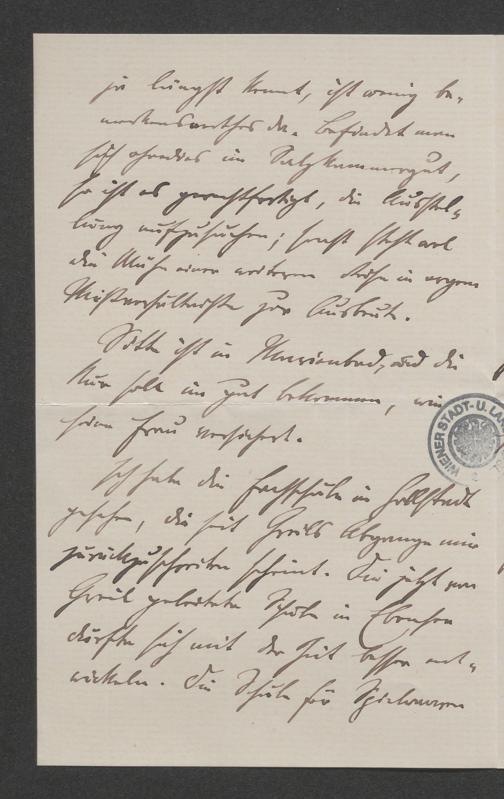 ja längst kennt, ist wenig be-
merkenswerthes da. Befindet man
sich ohnedies im Salzkammergut,
so ist es gerechtfertigt, die Ausstel-
lung aufzusuchen; sonst steht wol
die Mühe einer weiteren Reise in argem
Mißverhältnisse zur Ausbeute.
Sitte ist in Marienbad, und die
Kur soll im gut bekommen, wie
seine Frau versichert.
Ich habe die Fachschule in Hallstadt
gesehen, die seit Greils Abgange mir
zurückzuschreiten scheint. Die jetzt von
Greil geleitete Schule in Ebensee
dürfte sich mit der Zeit besser ent-
wickeln. Die Schule für Spielwaaren
WIENER STADT- U. LAN